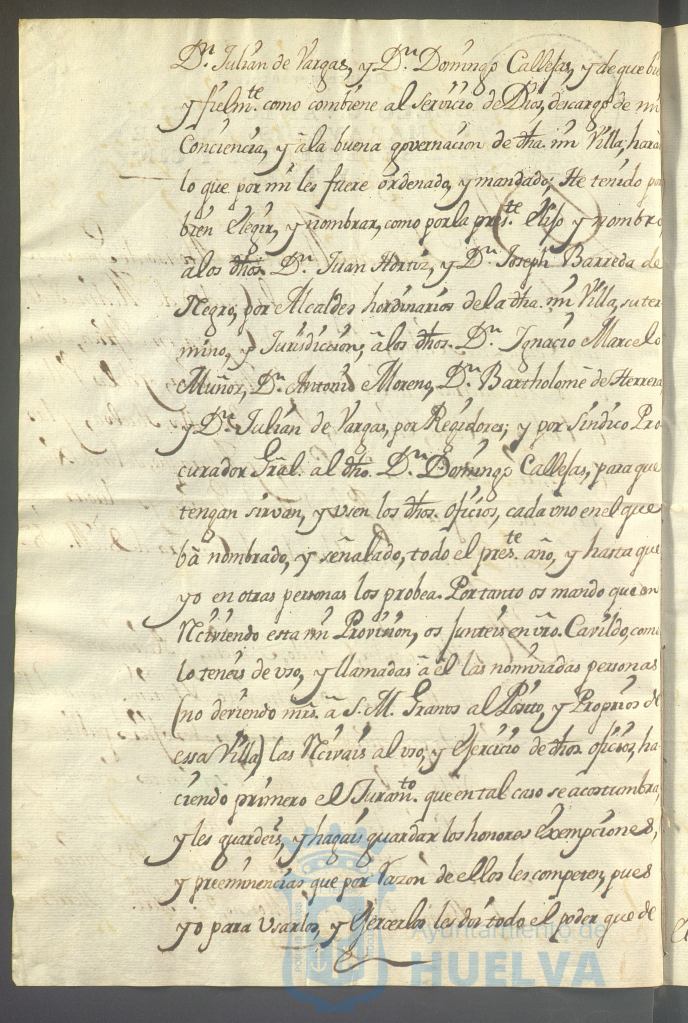 Dn. Julian de Vargas, y Dn. Domingo Callejas, y de que bie
y fielmte. como combiene al servicio de Dios, descargo de mi
Conciencia, y â la buena governacion de dha. mi Villa, harân
lo que por mi les fuere ordenado, y mandado; He tenido por
bien elegir, y nombrar, como por la preste. Elijo y nombro
â los dhos. Dn. Juan Hortiz, y Dn. Joseph Barreda de
Negro, por Alcaldes hordinarios de la dha. mi Villa, su ter
mino, y Jurisdiccion, â los dhos. Dn. Ignacio Marcelo
Muñoz, Dn. Antonio Moreno, Dn. Bartholomè de Herrera,
y Dn. Julian de Vargas, por Regidores; y por Sindico Pro
curador Gral. al dho. Dn. Domingo Callejas, para que
tengan sirvan, y usen los dhos. oficios, cada uno en el que
bà nombrado, y señalado, todo el preste. año, y hasta que
yo en otras personas los probea. Portanto os mando que en
Reciviendo esta mi Provision, os junteis en vro. Cavildo, como
lo teneis de uso, y llamadas â êl las nominadas personas
(no deviendo mrs. â S. M. Granos al Posito, y Proprios de
essa Villa) las Recivais al uso, y Ejercicio de dhos. oficios, ha-
ciendo primero el Juramto. que en tal caso se acostumbra,
y les guardeis, y hagais guardar los honores Exempciones,
y preeminencias que por Razon de ellos les competen, pues
yo para Usarlos, y Ejercerlos les doi todo el poder que de
Ayuntamiento de
HUELVA